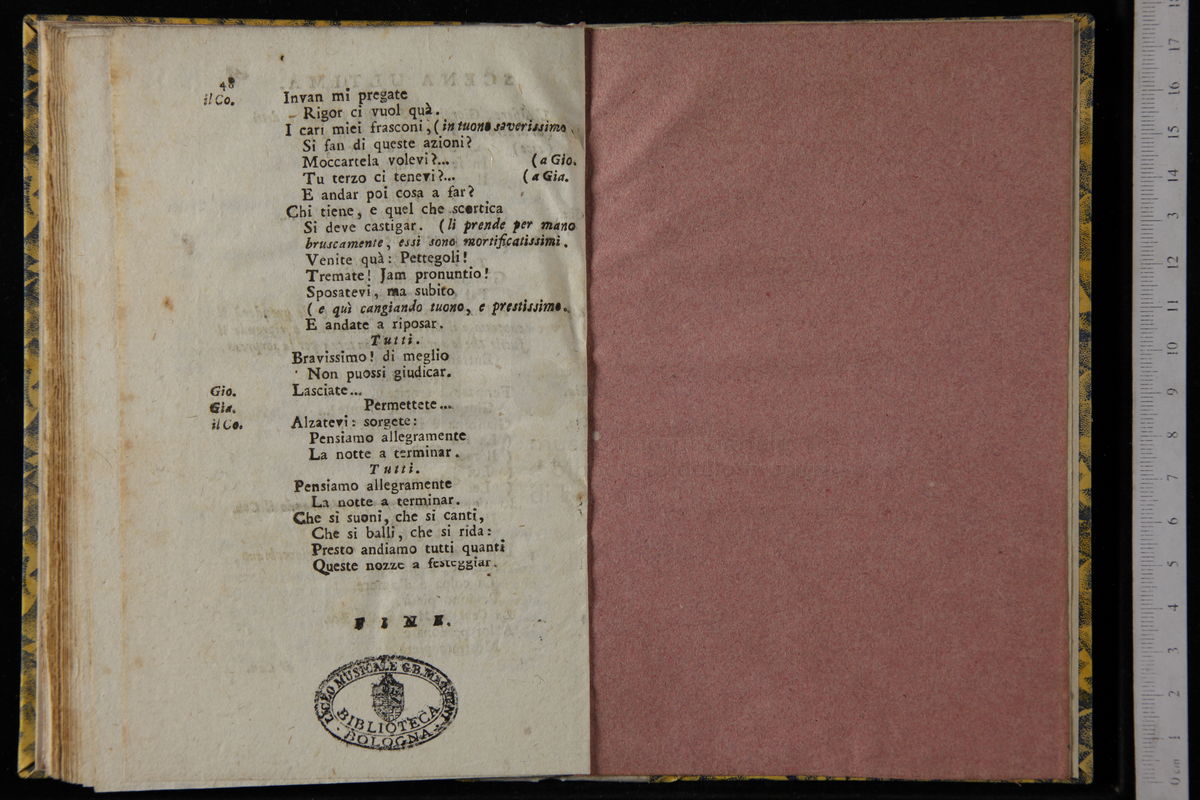 48
il Co. Invan mi pregate
Rigor ci vuol quà.
I cari miei frasconi, (in tuono saverissimo.
Si fan di queste azioni?
Moccartela volevi?... (a Gio.
Tu terzo ci tenevi?... (a Gia.
E andar poi cosa a far?
Chi tiene, e quel che scortica
Si deve castigar. (li prende per mano
bruscamente, essi sono mortificatissimi.
Venite quà: Pettegoli!
Tremate! Jam pronuntio!
Sposatevi, ma subito
(e quì cangiando tuono, e prestissimo.
E andate a riposar.
Tutti.
Bravissimo! di meglio
Non puossi giudicar.
Gio. Lasciate...
Gia. Permettete...
il Co. Alzatevi: sorgete:
Pensiamo allegramente
La notte a terminar.
Tutti.
Pensiamo allegramente
La notte a terminar.
Che si suoni, che si canti,
Che si balli, che si rida:
Presto andiamo tutti quanti
Queste nozze a festeggiar.
FINE.
LICEO MUSICALE G.B. MARTINI
BIBLIOTECA
BOLOGNA
17
16
15
14
3
12
11
10
9
8
7
6
5
4
3
2
1
0 cm